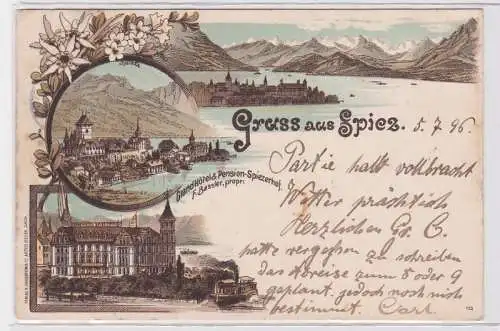 Gruss aus Spiez. 5.7.96.
Grand Hôtel & Pension-Spiezerhof.
F. Bässler, propr.
Partie halb vollbracht
Wetter prächtich
Herzlichen Gr. C.
hatte vergessen zu schreiben
das Abreise zum 8 oder 9
geplant. jedoch noch nich
bestimmt. Carl